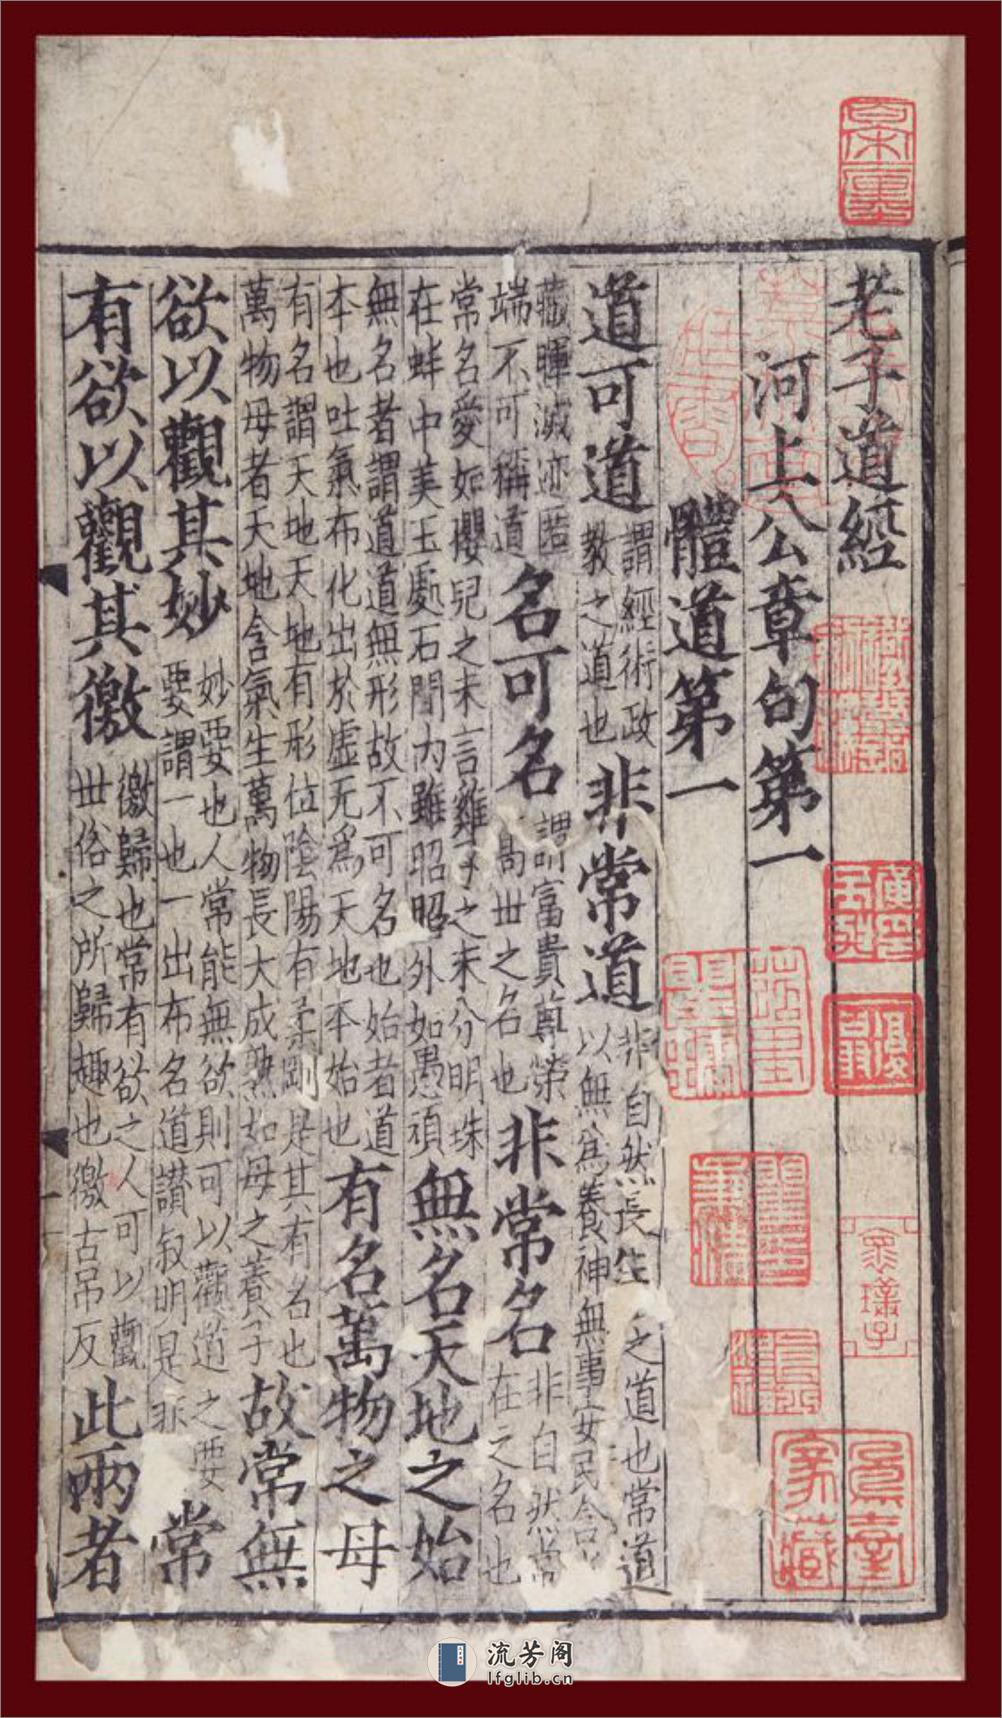 老子道經
河上公章句第一
體道第一
道可道謂經術政教之道也非常道非自然長生之道也常道以無為養神無事安民含
藏暉滅迹匿端不可稱道名可名謂富貴尊榮高世之名也非常名非自然常在之名也
常名愛如嬰兒之未言雞子之未分明珠在蚌中美玉處石間内雖昭昭外如愚頑無名天地之始
無名者謂道道無形故不可名也始者道本也吐氣布化出於虛无為天地本始也有名萬物之母
有名謂天地天地有形位陰陽有柔剛是其有名也萬物母者天地含氣生萬物長大成熟如母之養子故常無
欲以觀其妙妙要也人常能無欲則可以觀道之要要謂一也一出布名道讃叙明是非常
有欲以觀其徼徼歸也常有欲之人可以觀世俗之所歸趣也徼古吊反此兩者
流芳阁
lfglib.cn